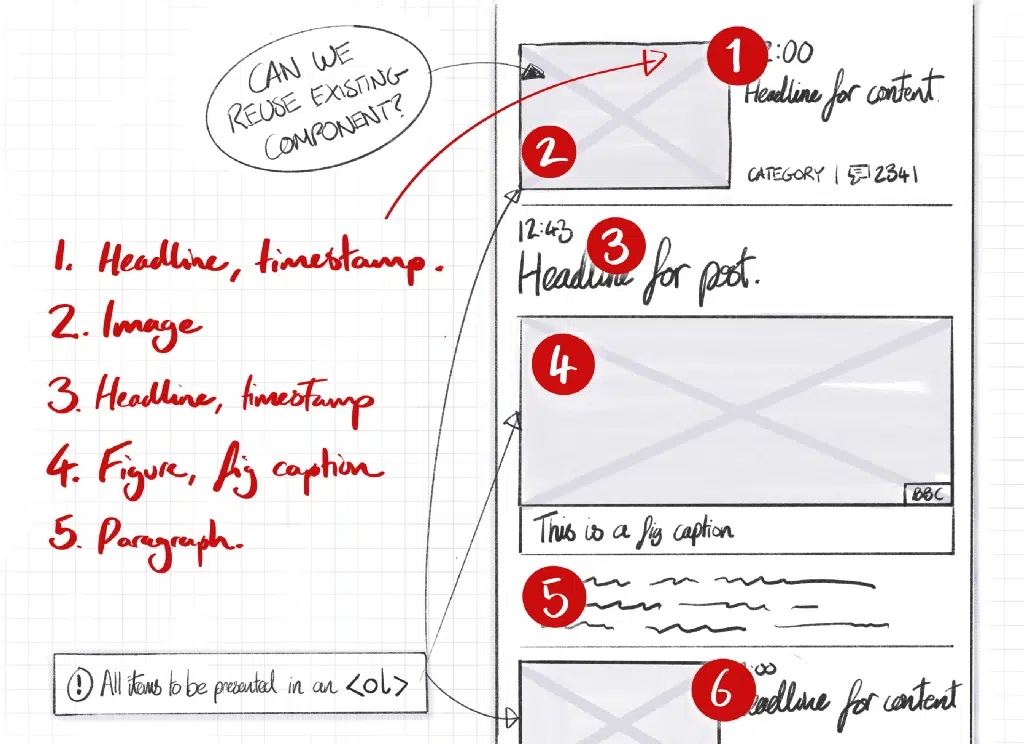 CAN WE
REUSE EXISTING
COMPONENT?
1. Headline, timestamp.
2. Image
3. Headline, timestamp
4. Figure, fig caption
5. Paragraph.
! All items to be presented in an <ol>
1
:00
Headline for content.
2
CATEGORY | 2341
12:43
3
Headline for post.
4
BBC
This is a fig caption
5
6
:00
Headline for content